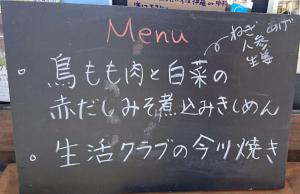 Menu
ねぎ あげ
人参
生姜
・鳥もも肉と白菜の
赤だしみそ煮込みきしめん
・生活クラブの今川焼き